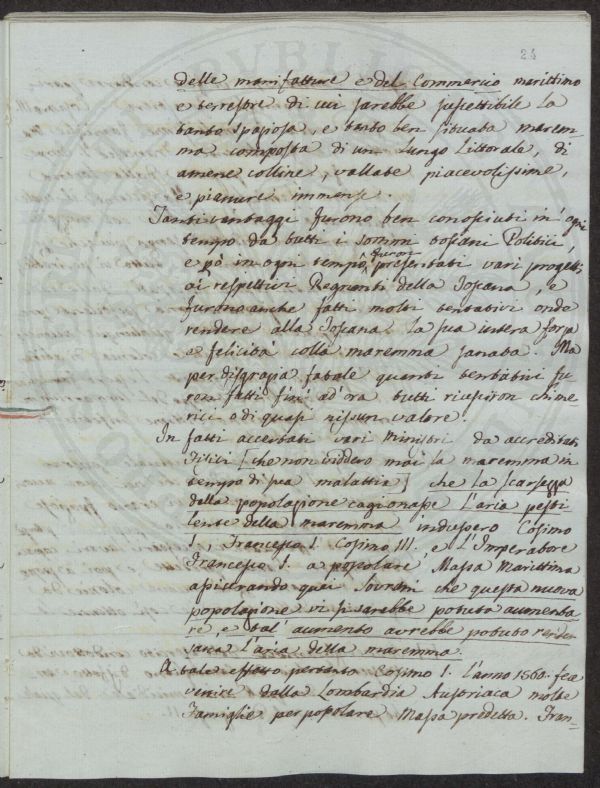 24
delle manifatture e del Commercio marittimo
e terrestre di cui sarebbe suscettibile la
tanto spaziosa, e tanto ben situata marem-
ma composta di un lungo littorale, di
amene colline, vallate piacevolissime,
e pianure immense.
Tanti vantaggi furono ben conosciuti in ogni
tempo da tutti i sommi toscani Politici,
furon
e però in ogni tempo presentati vari progetti
ai respettivi Regnanti della Toscana, e
furono anche fatti molti tentativi onde
rendere alla Toscana la sua intera forza
e felicità colla maremma sanata. Ma
per disgrazia fatale quanti tentativi fu-
ron fatti fin' ad' ora tutti riusciron chime-
rici o di quasi nissun valore.
In fatti accertati vari Ministri da accreditati
Fisici [che non viddero mai la maremma in
tempo di sua malattia] che la scarsezza
della popolazione cagionasse l'aria pesti-
lente della maremma indussero Cosimo
I., Francesco I. Cosimo III., e l'Imperatore
Francesco I. a popolare Massa Marittima
aspirando quei Sovrani che questa nuova
popolazione vi si sarebbe potuta aumenta-
re, e tal' aumento avrebbe potuto render
sana l'aria della maremma.
A tale effetto pertanto Cosimo I. l'anno 1560. fece
venire dalla Lombardia Austriaca molte
Famiglie per popolare Massa predetta. Fran-